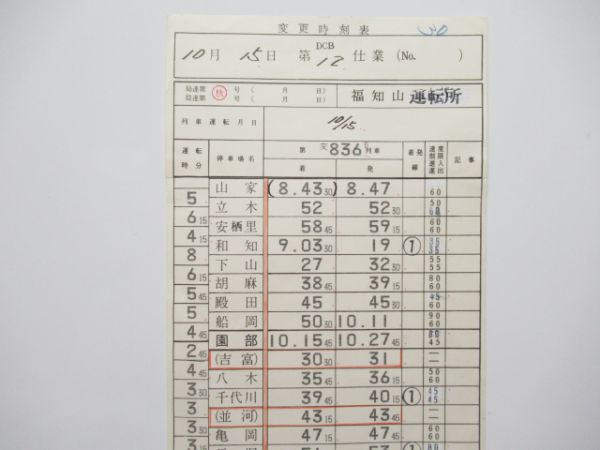 変更時刻表
30
10月 15日 第 DCB 12 仕業 (No. )
局達第 号 ( 月 日)
局達第 号 ( 月 日)
福知山運転所
列車運転月日 10/15
運転時分 停車場名 第 変836 列車 着 発 着発線 速度制限 記事
山家 (8.43 30) 8.47 60
5
立木 52 52 30 50 60
6 15
安栖里 58 45 59 15 60 60
4 15
和知 9.03 30 19 ① 35 35
8
下山 27 32 30 55 55
6 15
胡麻 38 45 39 15 80 60
5 45
殿田 45 45 30 45 60
5
船岡 50 30 10.11 90 60
4 45
園部 10.15 45 10.27 45 60 45
2 45
(吉富) 30 30 31 — —
4 45
八木 35 45 36 15 50 60
3
千代川 39 45 40 15 ① 45 45
3
(並河) 43 15 43 45 — —
3 30
亀岡 47 15 47 45 60 60
3
① 80